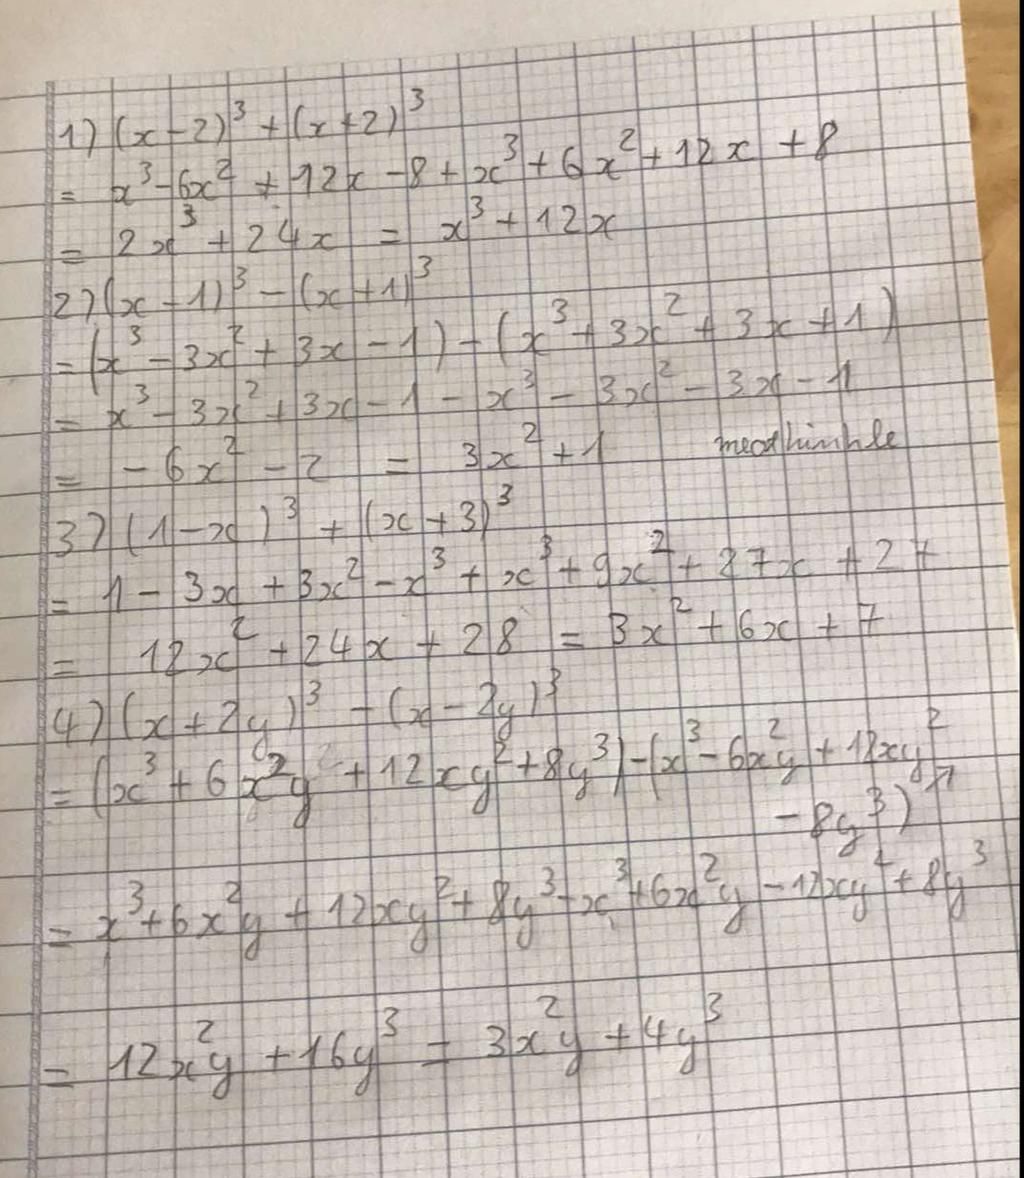 1) (x-2)³ + (x+2)³
= x³-6x² + 12x-8 + x³ + 6x² + 12x + 8
= 2x³ + 24x = x³ + 12x
2) (x-1)³ - (x+1)³
= (x³ - 3x² + 3x - 1) - (x³ + 3x² + 3x + 1)
= x³ - 3x² + 3x - 1 - x³ - 3x² - 3x - 1
= - 6x² - 2 = 3x² + 1
3) (1-x)³ + (x+3)³
= 1 - 3x + 3x² - x³ + x³ + 9x² + 27x + 27
= 12x² + 24x + 28 = 3x² + 6x + 7
4) (x+2y)³ - (x-2y)³
= (x³ + 6x²y + 12xy² + 8y³) - (x³ - 6x²y + 12xy²
- 8y³)
= x³ + 6x²y + 12xy² + 8y³ - x³ + 6x²y - 12xy² + 8y³
= 12x²y + 16y³ = 3x²y + 4y³